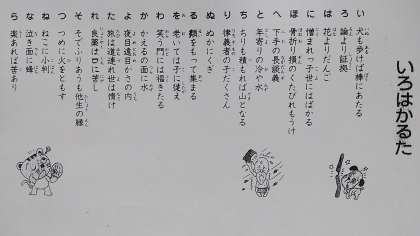 いろはかるた
い 犬も歩けば棒にあたる
ろ 論より証拠
は 花よりだんご
に 憎まれっ子世にはばかる
ほ 骨折り損のくたびれもうけ
へ 下手の長談義
と 年寄りの冷や水
ち ちりも積もれば山となる
り 律義者の子だくさん
ぬ ぬかにくぎ
る 類をもって集まる
を 老いては子に従え
わ 笑う門には福きたる
か かえるの面に水
よ 夜目遠目かさの内
た 旅は道連れ世は情け
れ 良薬は口に苦し
そ そでふりあうも他生の縁
つ つめに火をともす
ね ねこに小判
な 泣き面に蜂
ら 楽あれば苦あり